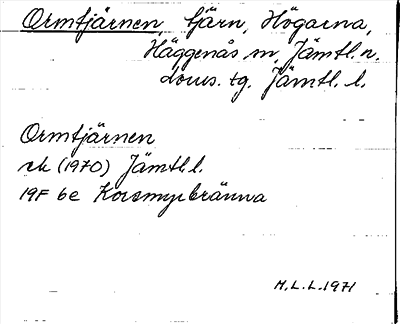 Ormtjärnen, tjärn, Högarna,
Häggenås sn, Jämtl. n.
doms. tg. Jämtl. l.
Ormtjärnen
rk (1970) Jämtl. l.
19F 6e Korsmyrbränna
M.L.L. 1971